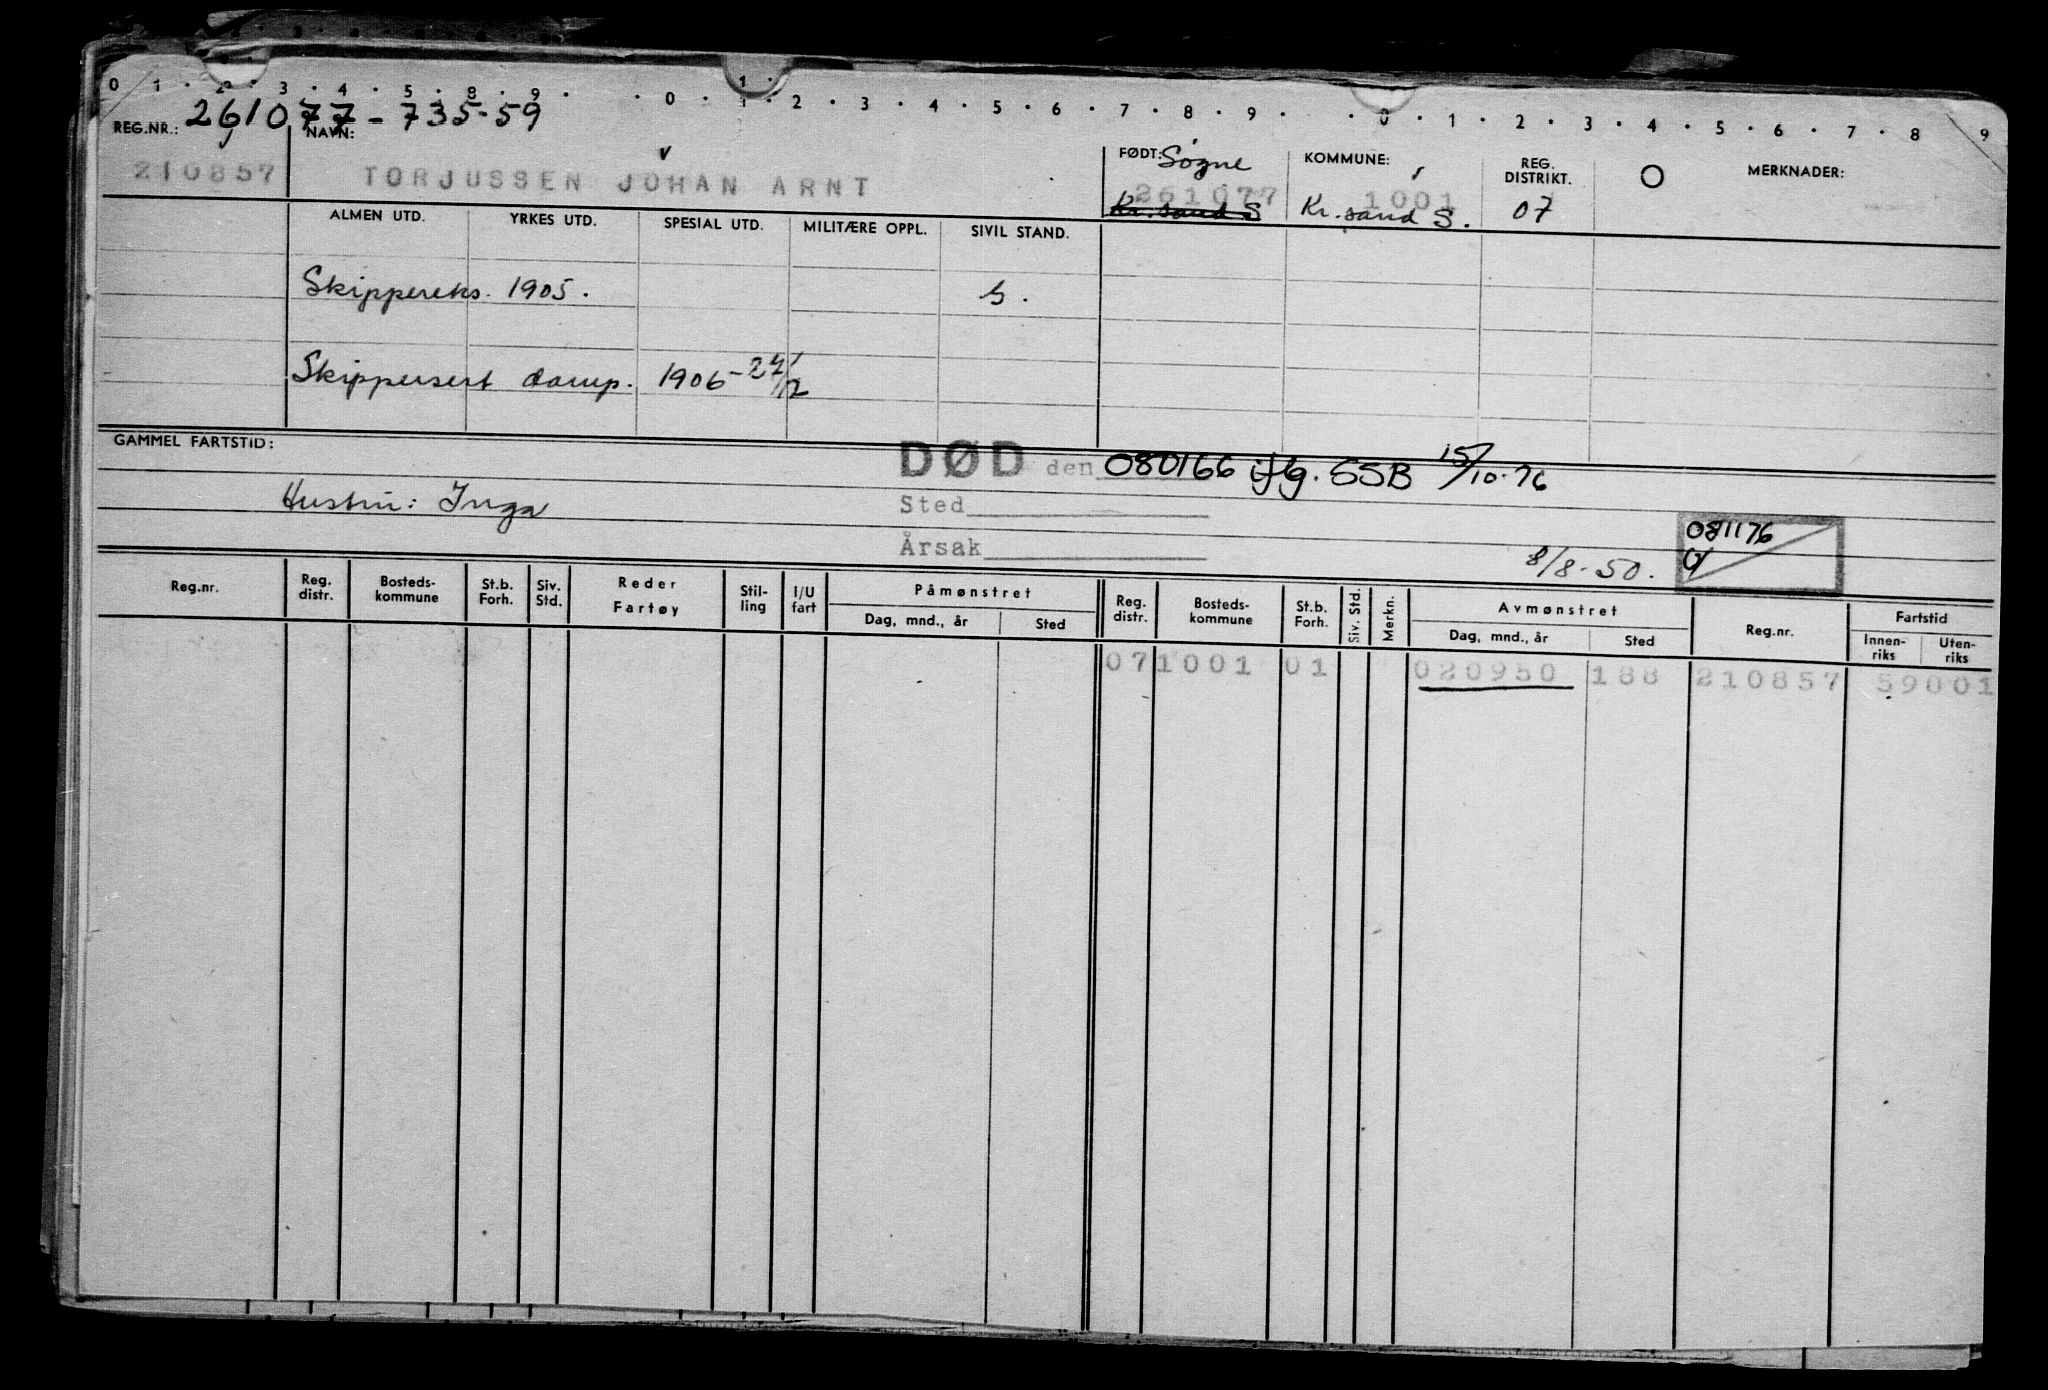 0 1 · 2 · 3 · 4 · 5 · 8 · 9 · · 0 · 1 · 2 · 3 · 4 · 5 · 6 · 7 · 8 · 9 · · 0 · 1 · 2 · 3 · 4 · 5 · 6 · 7 · 8 9
REG.NR.: 261077-735-59
NAVN: FØDT: Søgne KOMMUNE: REG. DISTRIKT. O MERKNADER:
210857 TORJUSSEN JOHAN ARNT 261077 1001
Kr.sand S Kr.sand S. 07
ALMEN UTD. YRKES UTD. SPESIAL UTD. MILITÆRE OPPL. SIVIL STAND.
Skippereks. 1905. G.
Skippersert damp. 1906-24/12
GAMMEL FARTSTID: DØD den 080166 iflg. SSB 15/10-76
Hustru: Inga Sted
081176
Årsak 8/8-50.
Reg.nr. Reg. distr. Bosteds-kommune St.b. Forh. Siv. Std. Reder Fartøy Stil-ling I/U fart Påmønstret Dag, mnd., år Sted Reg. distr. Bosteds-kommune St.b. Forh. Siv. Std. Merkn. Avmønstret Dag, mnd., år Sted Reg.nr. Fartstid Innen-riks Uten-riks
071001 01 020950 188 210857 59001